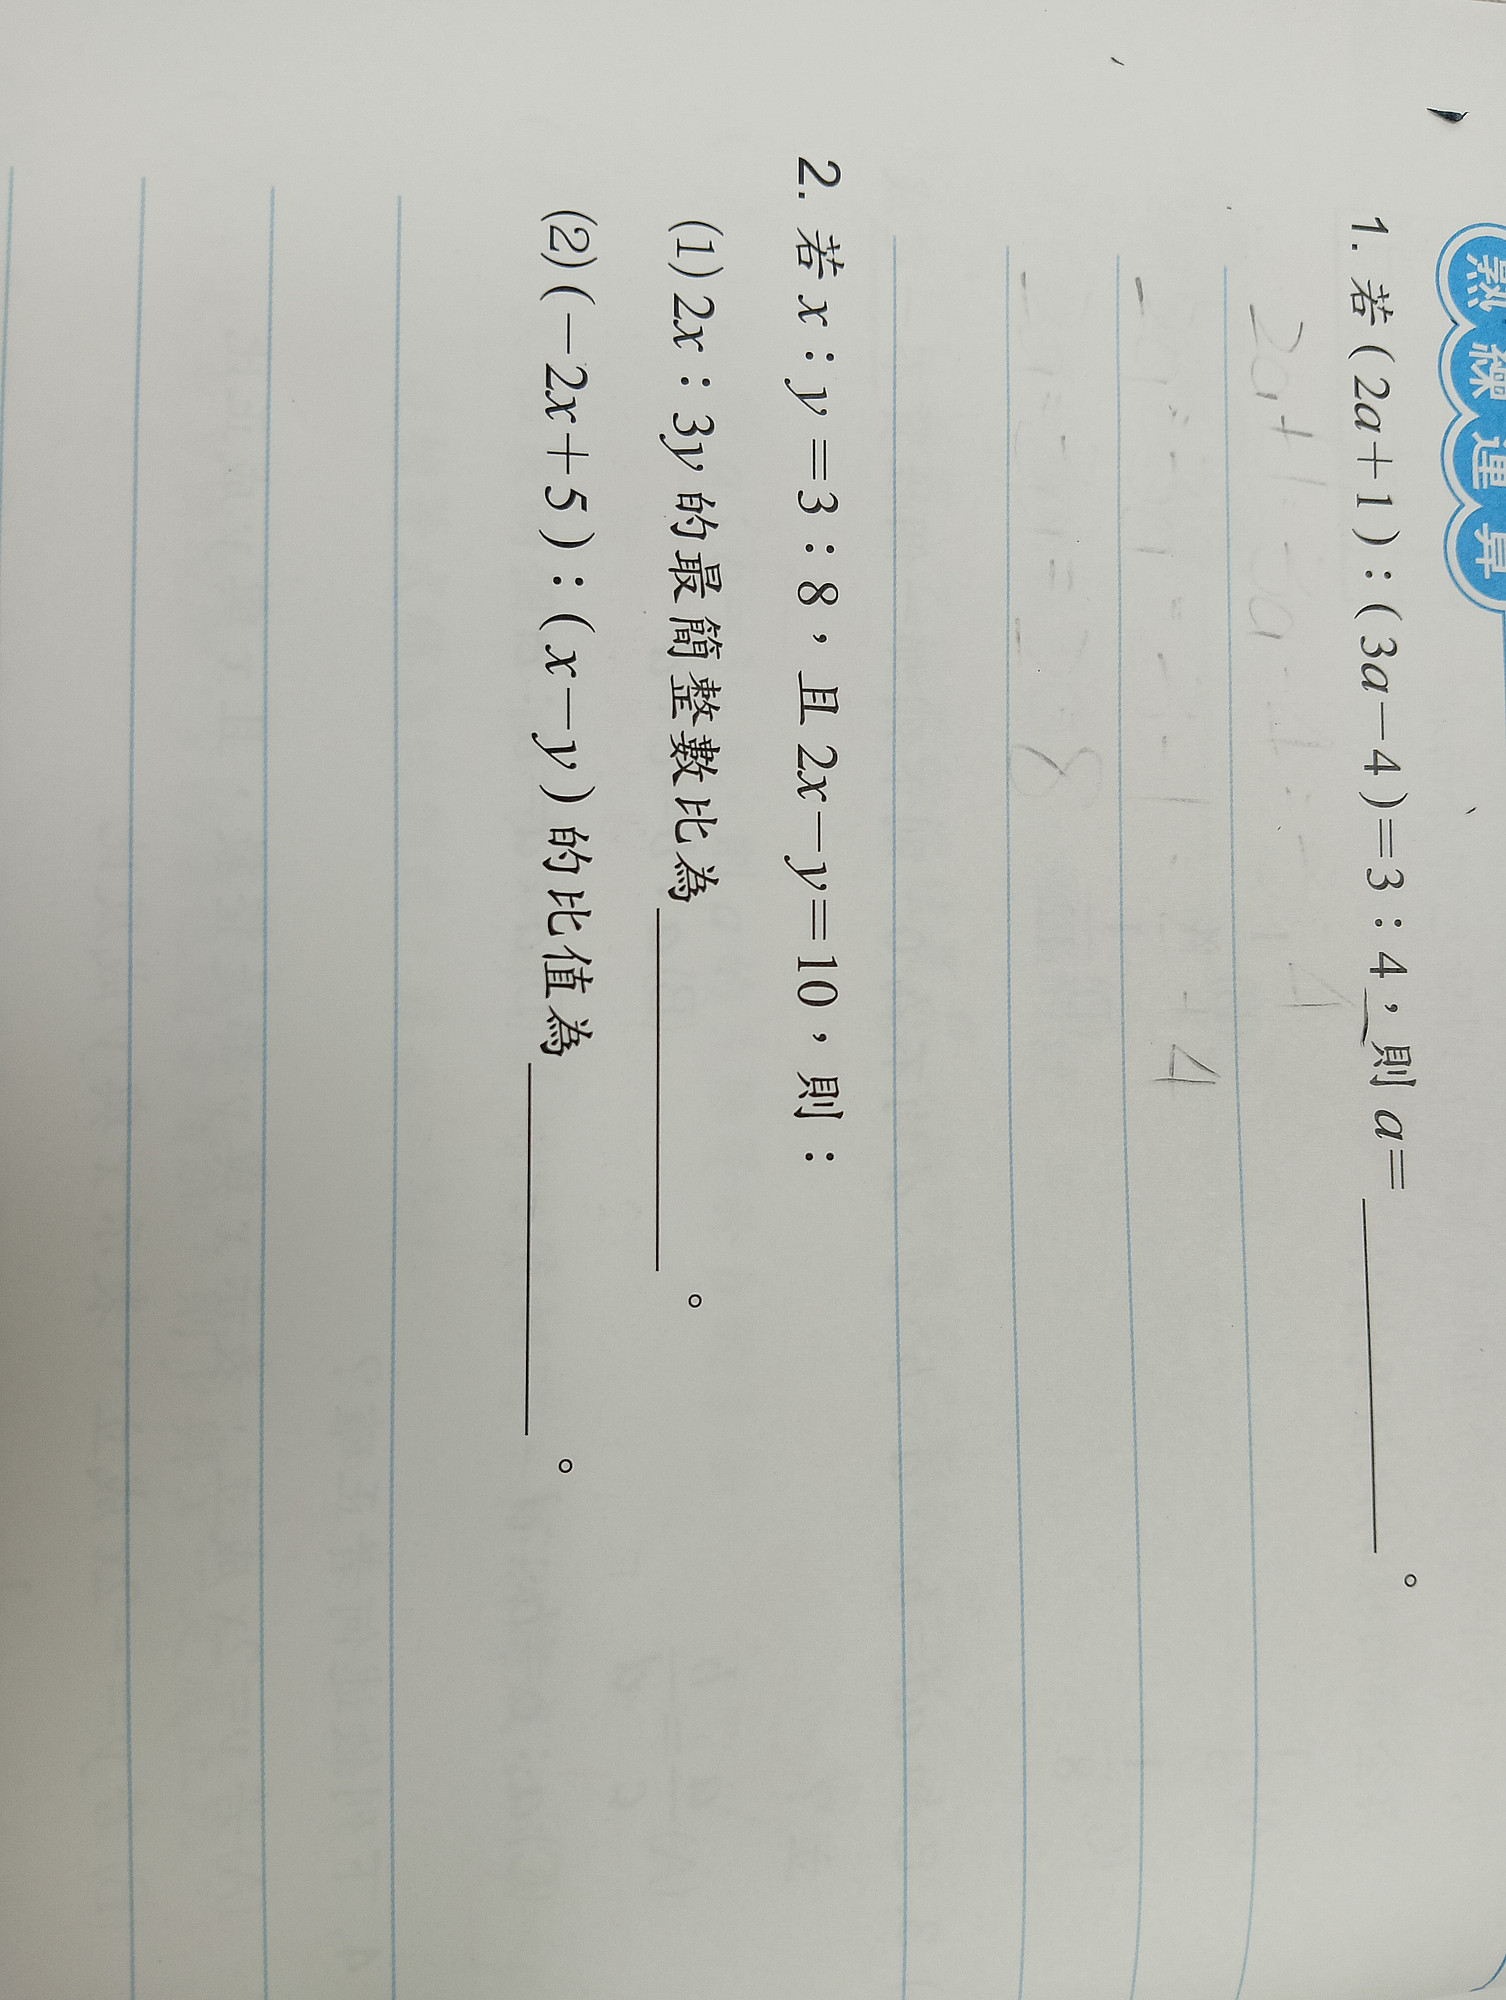 熟練運算
1. 若(2a+1):(3a-4)=3:4,則a=＿＿＿＿。
2a+1
4
8
2. 若x:y=3:8,且2x-y=10,則:
(1)2x:3y的最簡整數比為＿＿＿＿。
(2)(-2x+5):(x-y)的比值為＿＿＿＿。